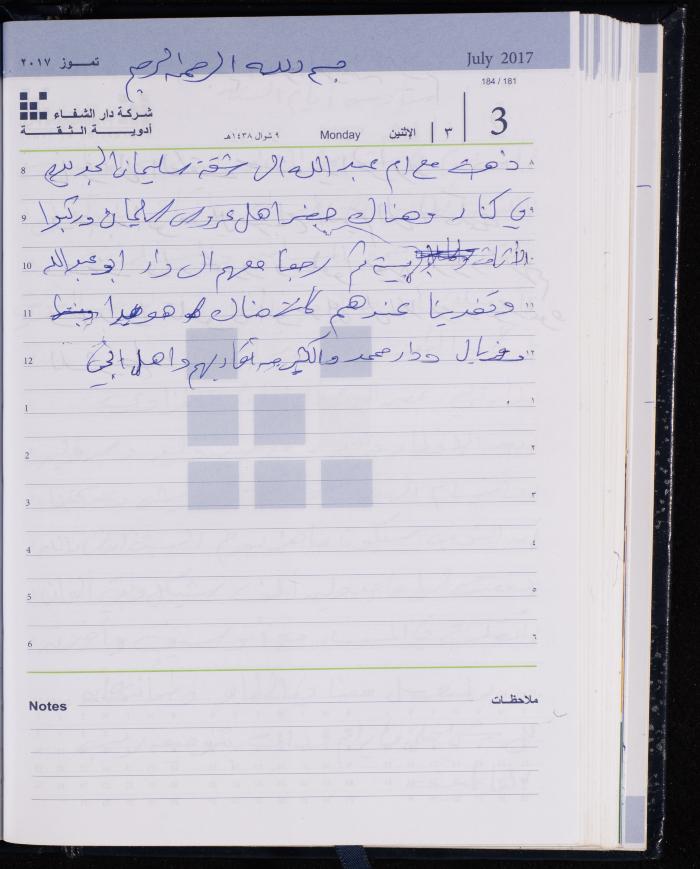 تموز ٢٠١٧ بسم الله الرحمن الرحيم July 2017
184 / 181
شركة دار الشفاء
أدوية الثقة
٩ شوال ١٤٣٨هـ Monday الإثنين ٣ 3
8 ذهبت مع ام عبد الله الى شقة سليمان الجديدة ٨
9 في كنار وهناك حضر اهل عروس سليمان وركبوا ٩
10 الأثاث ثم رجعنا معهم الى دار ابو عبد الله ١٠
11 وتغدينا عندهم كالأضاك هو ١١
12 وفريال ودار محمد والكثير من اقاربهم واهل ١٢
1 ١
2 ٢
3 ٣
4 ٤
5 ٥
6 ٦
Notes ملاحظات